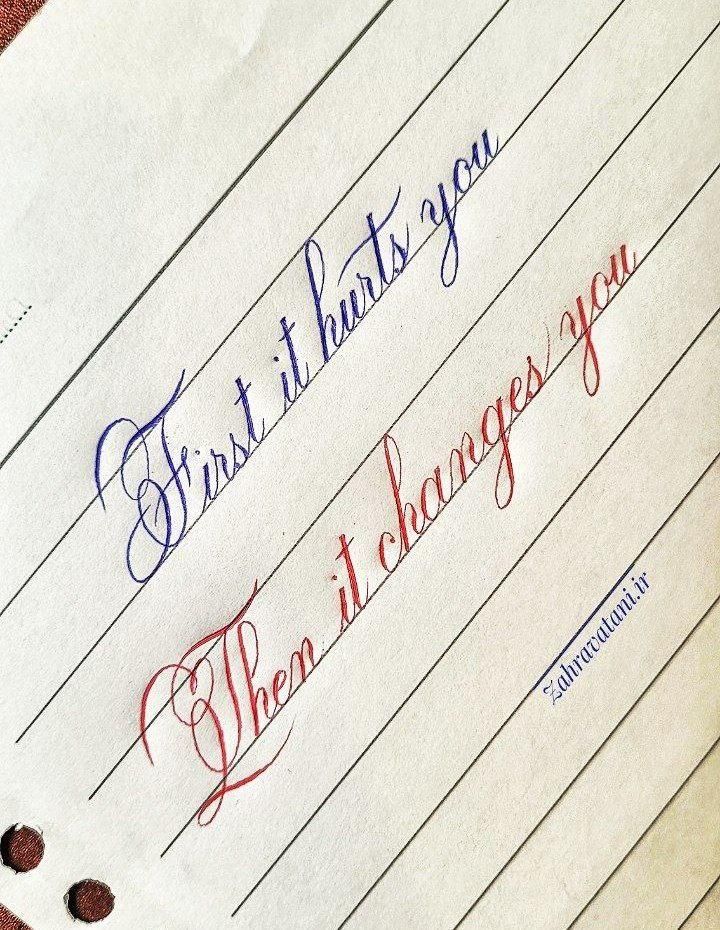 First it hurts you
Then it changes you
zahravatani.ir